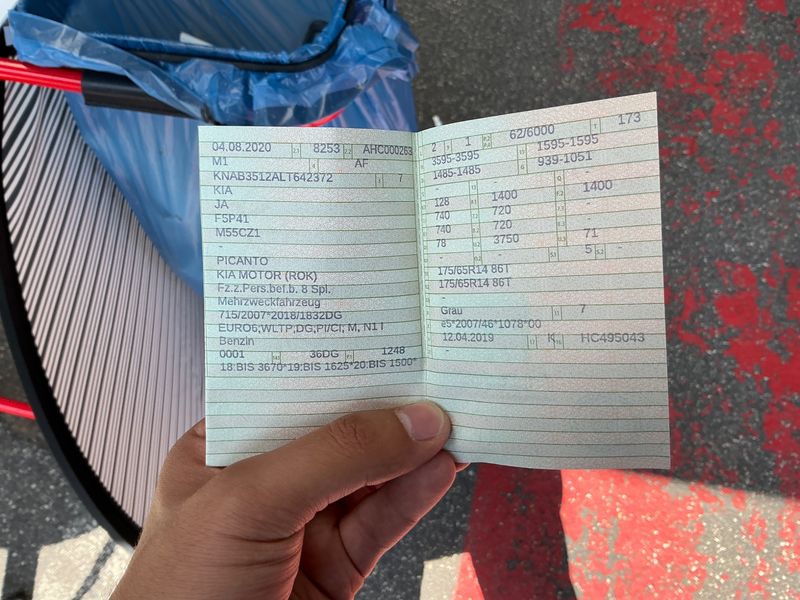 04.08.2020 8253 AHC000263
M1 AF
KNAB3512ALT642372 7
KIA
JA
F5P41
M55CZ1
-
PICANTO
KIA MOTOR (ROK)
Fz.z.Pers.bef.b. 8 Spl.
Mehrzweckfahrzeug
715/2007*2018/1832DG
EURO6;WLTP;DG;PI/CI; M, N1 I
Benzin
0001 36DG 1248
18:BIS 3670*19:BIS 1625*20:BIS 1500*
2 1 62/6000 173
3595-3595 1595-1595
1485-1485 939-1051
- -
128 1400 1400
740 720 -
740 720 -
78 3750 71
- - 5 -
175/65R14 86T
175/65R14 86T
-
Grau 7
e5*2007/46*1078*00
12.04.2019 K HC495043